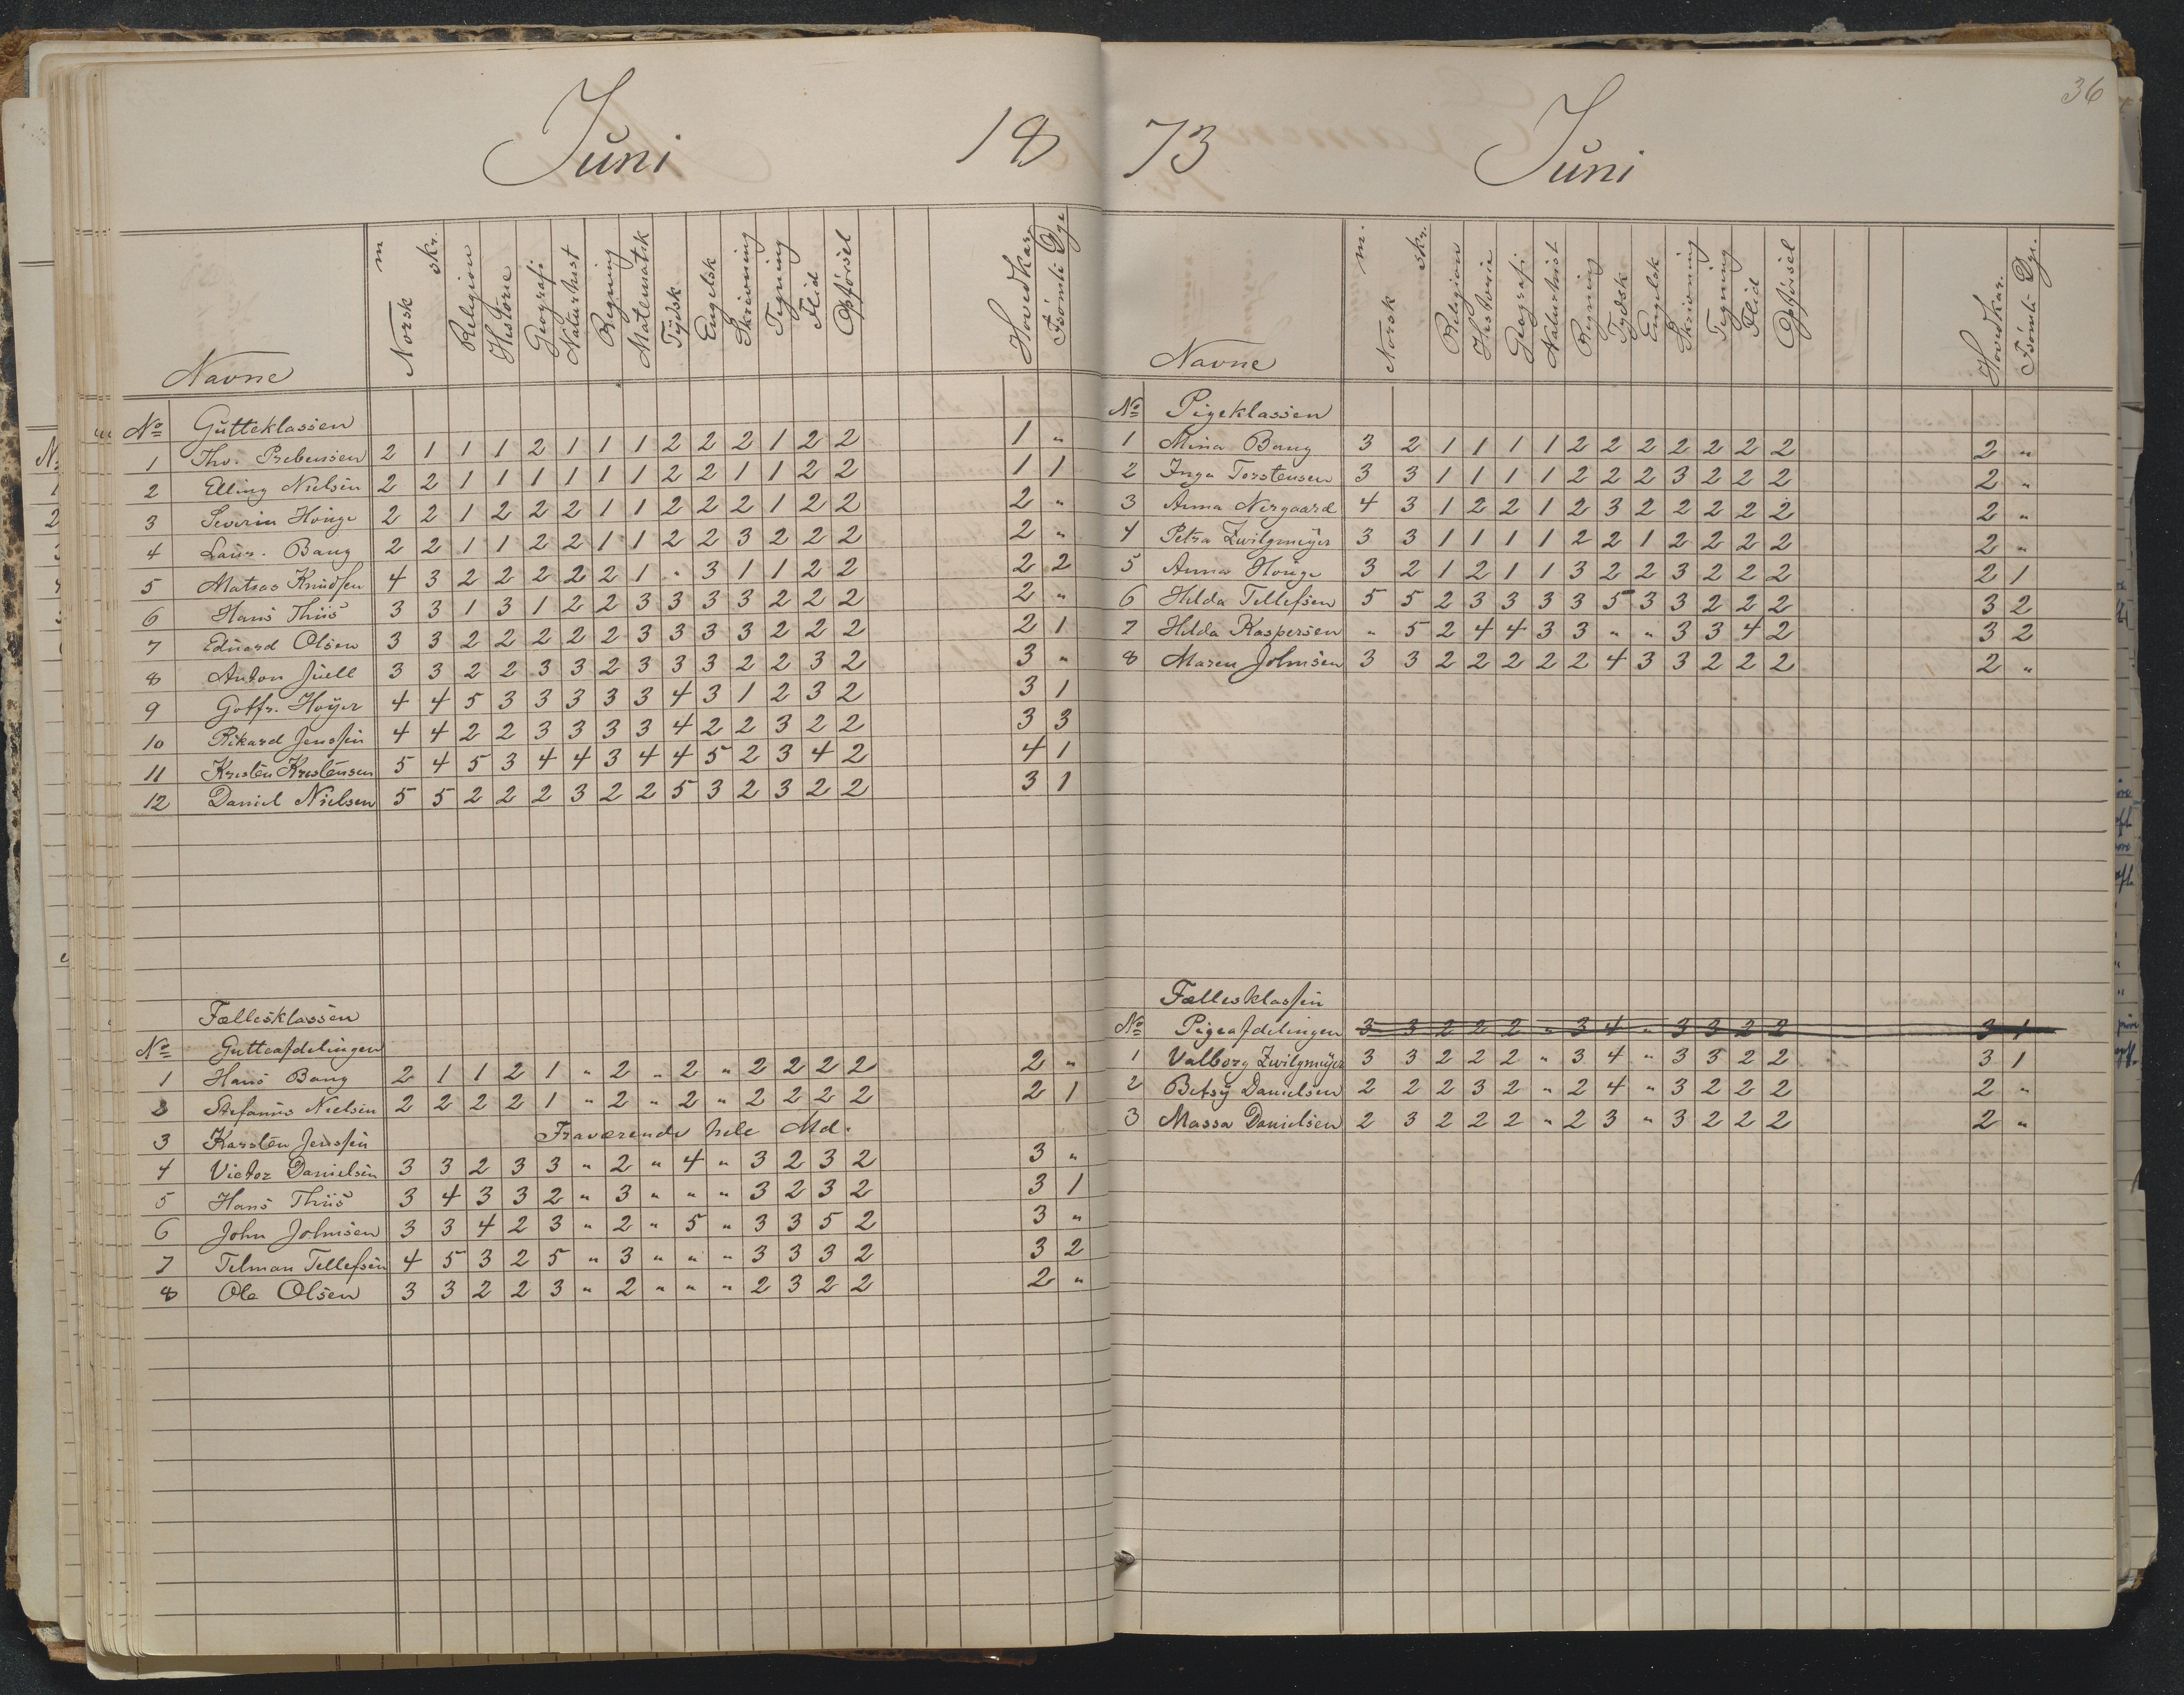 Juni 18
Navne Norsk m skr. Religion Historie Geografi Naturhist Regning Matematik Tydsk Engelsk Skrivning Tegning Flid Opførsel Hovedkar. Fsömti Dge
No Gutteklassen
1 Tho. Prebensen 2 1 1 1 2 1 1 1 2 2 2 1 2 2 1 "
2 Elling Nielsen 2 2 1 1 1 1 1 1 2 2 1 1 2 2 1 1
3 Severin Honge 2 2 1 2 2 2 1 1 2 2 2 1 2 2 2 "
4 Laur. Bang 2 2 1 1 2 2 1 1 2 2 3 2 2 2 2 "
5 Matias Knudsen 4 3 2 2 2 2 2 1 " 3 1 1 2 2 2 2
6 Hans Thiis 3 3 1 3 1 2 2 3 3 3 3 2 2 2 2 "
7 Eduard Olsen 3 3 2 2 2 2 2 3 3 3 3 2 2 2 2 1
8 Anton Juell 3 3 2 2 3 3 2 3 3 3 2 2 3 2 3 "
9 Gotfr. Høyer 4 4 5 3 3 3 3 3 4 3 1 2 3 2 3 1
10 Rikard Jenssen 4 4 2 2 3 3 3 3 4 2 2 3 2 2 3 3
11 Kresten Krestensen 5 4 5 3 4 4 3 4 4 5 2 3 4 2 4 1
12 Daniel Nielsen 5 5 2 2 2 3 2 2 5 3 2 3 2 2 3 1
Fællesklassen
No Gutteafdelingen
1 Hans Bang 2 1 1 2 1 " 2 " 2 " 2 2 2 2 2 "
2 Stefanus Nielsen 2 2 2 2 1 " 2 " 2 " 2 2 2 2 2 1
3 Karsten Jenssen Fraværende hele Md.
4 Victor Danielsen 3 3 2 3 3 " 2 " 4 " 3 2 3 2 3 "
5 Hans Thiis 3 4 3 3 2 " 3 " " " 3 2 3 2 3 1
6 John Johnsen 3 3 4 2 3 " 2 " 5 " 3 3 5 2 3 "
7 Telman Tellefsen 4 5 3 2 5 " 3 " " " 3 3 3 2 3 2
8 Ole Olsen 3 3 2 2 3 " 2 " " " 2 3 2 2 2 "
36
73 Juni
Navne Norsk m. skr. Religion Historie Geografi Naturhist Regning Tydsk Engelsk Skrivning Tegning Flid Opførsel Hovedkar. Fsömti Dge.
No Pigeklassen
1 Mina Bang 3 2 1 1 1 1 2 2 2 2 2 2 2 2 "
2 Inga Torstensen 3 3 1 1 1 1 2 2 2 3 2 2 2 2 "
3 Anna Nergaard 4 3 1 2 2 1 2 3 2 2 2 2 2 2 "
4 Petra Zwilgmeyer 3 3 1 1 1 1 2 2 1 2 2 2 2 2 "
5 Anna Honge 3 2 1 2 1 1 3 2 2 3 2 2 2 2 1
6 Hilda Tellefsen 5 5 2 3 3 3 3 5 3 3 2 2 2 3 2
7 Hilda Kaspersen " 5 2 4 4 3 3 " " 3 3 4 2 3 2
8 Maren Johnsen 3 3 2 2 2 2 2 4 3 3 2 2 2 2 "
Fællesklassen
No Pigeafdelingen 3 3 2 2 2 " 3 4 " 3 3 2 2 3 1
1 Valborg Zwilgmeyer 3 3 2 2 2 " 3 4 " 3 3 2 2 3 1
2 Betsy Danielsen 2 2 2 3 2 " 2 4 " 3 2 2 2 2 "
3 Massa Danielsen 2 3 2 2 2 " 2 3 " 3 2 2 2 2 "